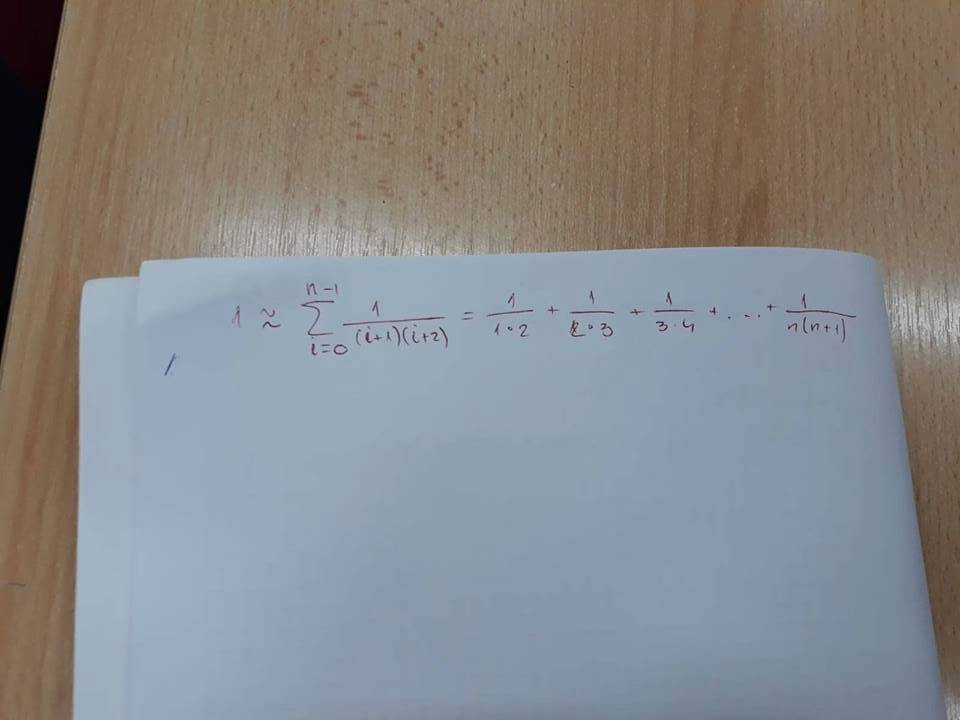 1 ≈ \sum_{i=0}^{n-1} \frac{1}{(i+1)(i+2)} = \frac{1}{1·2} + \frac{1}{2·3} + \frac{1}{3·4} + ... + \frac{1}{n(n+1)}